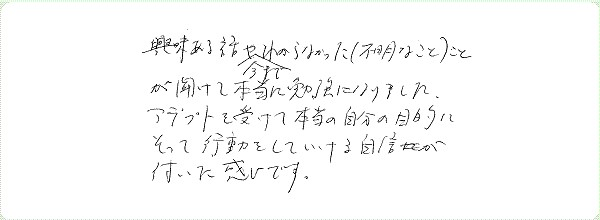 興味ある話や今までわからなかった(不明なこと)こと
が聞けて本当に勉強になりました。
アデプトを受けて本当の自分の目的に
そって行動をしていける自信が
付いた感じです。